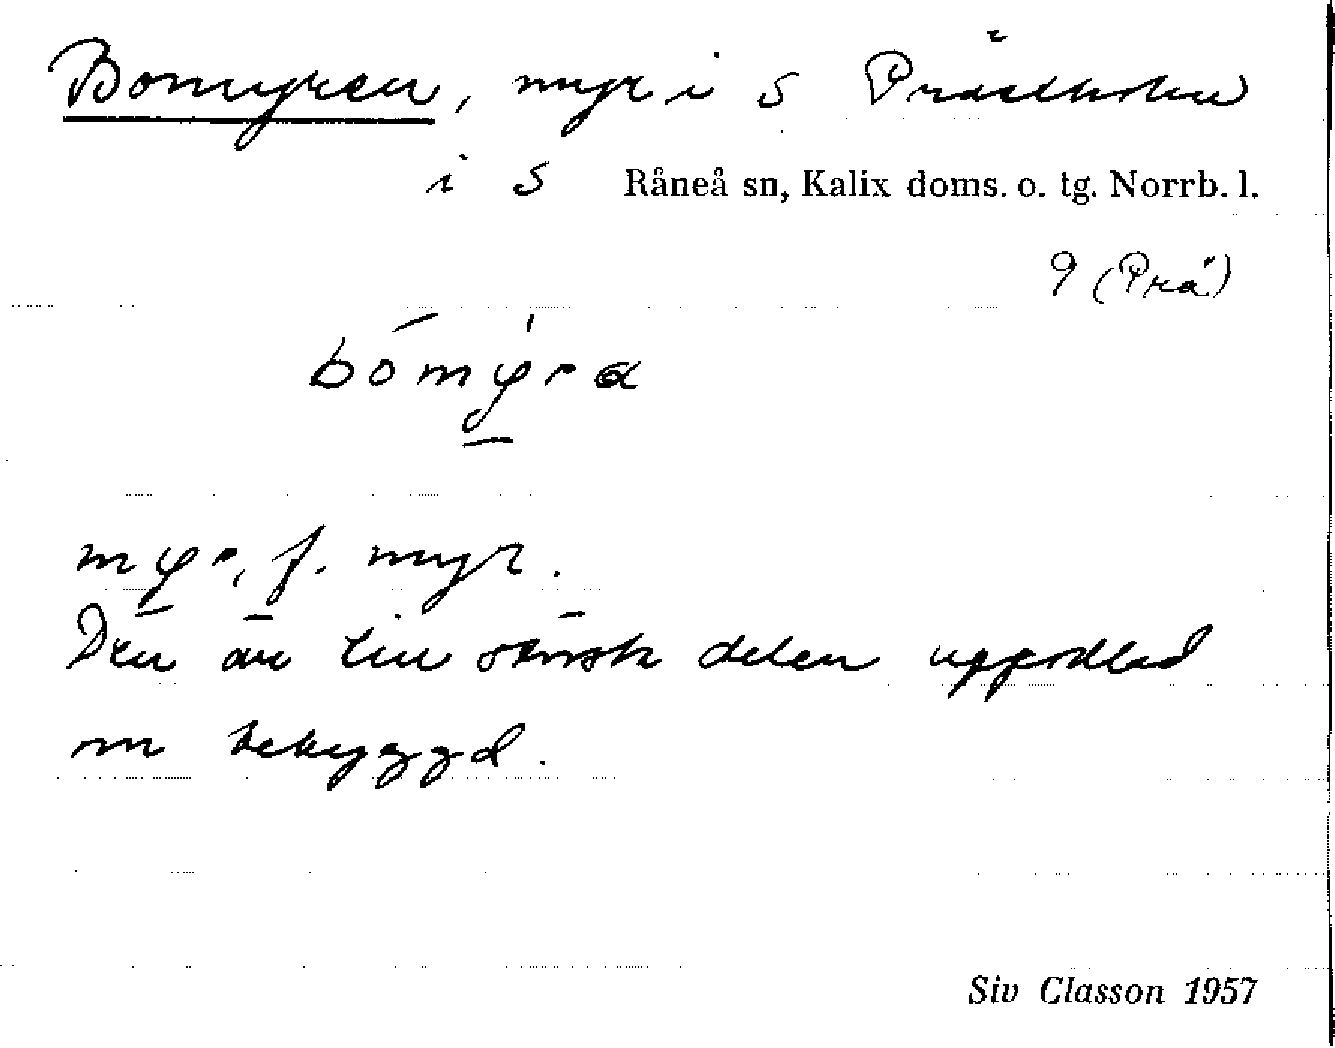 Bomyren, myr i S Prästholm
i S Råneå sn, Kalix doms. o. tg. Norrb. l.
9 (Prä)
bómy̱ra
my̱r, f. myr.
Den är till största delen uppodlad
o bebyggd.
Siv Classon 1957